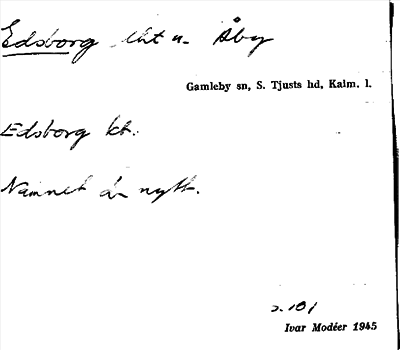 Edsborg lht u. Åby
Gamleby sn, S. Tjusts hd, Kalm. l.
Edsborg kt.
Namnet är nytt.
s. 101
Ivar Modéer 1945